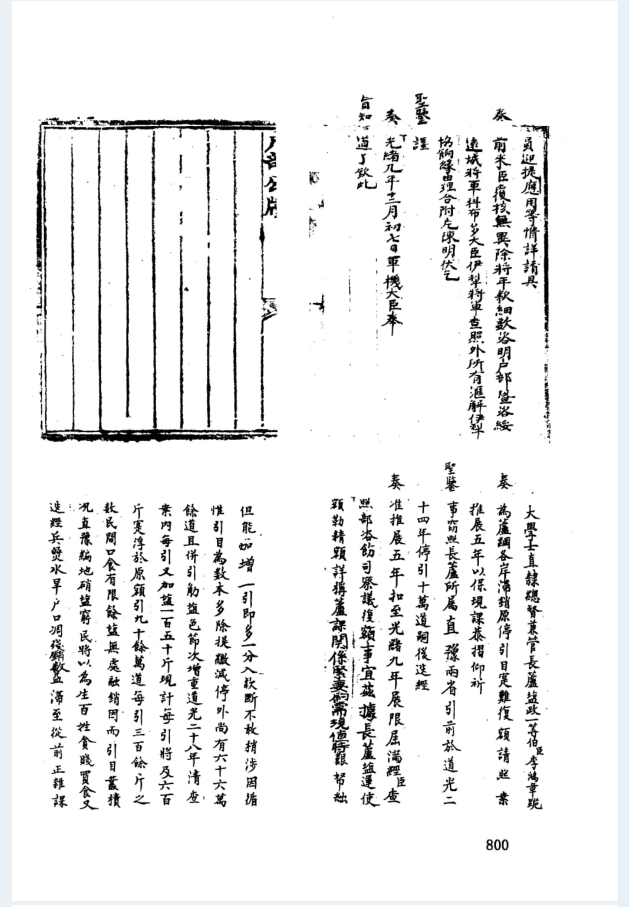 員迎提應用等情詳請具
奏前來臣覆核無異除將年款細數咨明戶部暨咨綏
遠城將軍科布多大臣伊犁將軍查照外所有滙解伊犁
協餉緣由理合附片陳明伏乞
聖鑒謹
奏光緒九年十二月初七日軍機大臣奉
旨知道了欽此
戶部公牘
大學士直隸總督兼管長蘆鹽政一等伯臣李鴻章跪
奏為蘆綱各岸滯銷原停引目寔難復額請照案
推展五年以保現課恭摺仰祈
聖鑒事竊照長蘆所屬直豫兩省引前於道光二
十四年停引十萬道嗣後迭經
奏准推展五年扣至光緒九年展限屆滿經臣查
照部咨飭司察議復額事宜茲據長蘆鹽運使
額勒精額詳稱蘆課關係緊要餉需現值時艱幫融
但能加增一引即多一分入款斷不敢稍涉因循
惟引目為數本多除提繳減停外尚有六十六萬
餘道且併引觔鹽色節次增重道光二十八年清查
案內每引又加鹽一百五十斤現計每引將及六百
斤寔浮於原額引九十餘萬道每引三百餘斤之
數民間口食有限餘鹽無處融銷因而引目叢積
况直豫編地硝鹽窮民將以為生百姓貪賤買食又
迭經兵燹水旱戶口凋殘銷數益滯至從前正雜課
800